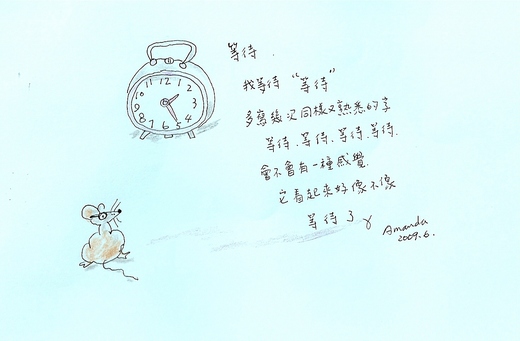 等待.
我等待 "等待"
多寫幾次同樣又熟悉的字
等待、等待、等待、等待.
會不會有一種感覺
它看起來好像不像
等待了
Amanda
2009.6.
11 12 1
10 2
9 3
8 4
7 6 5